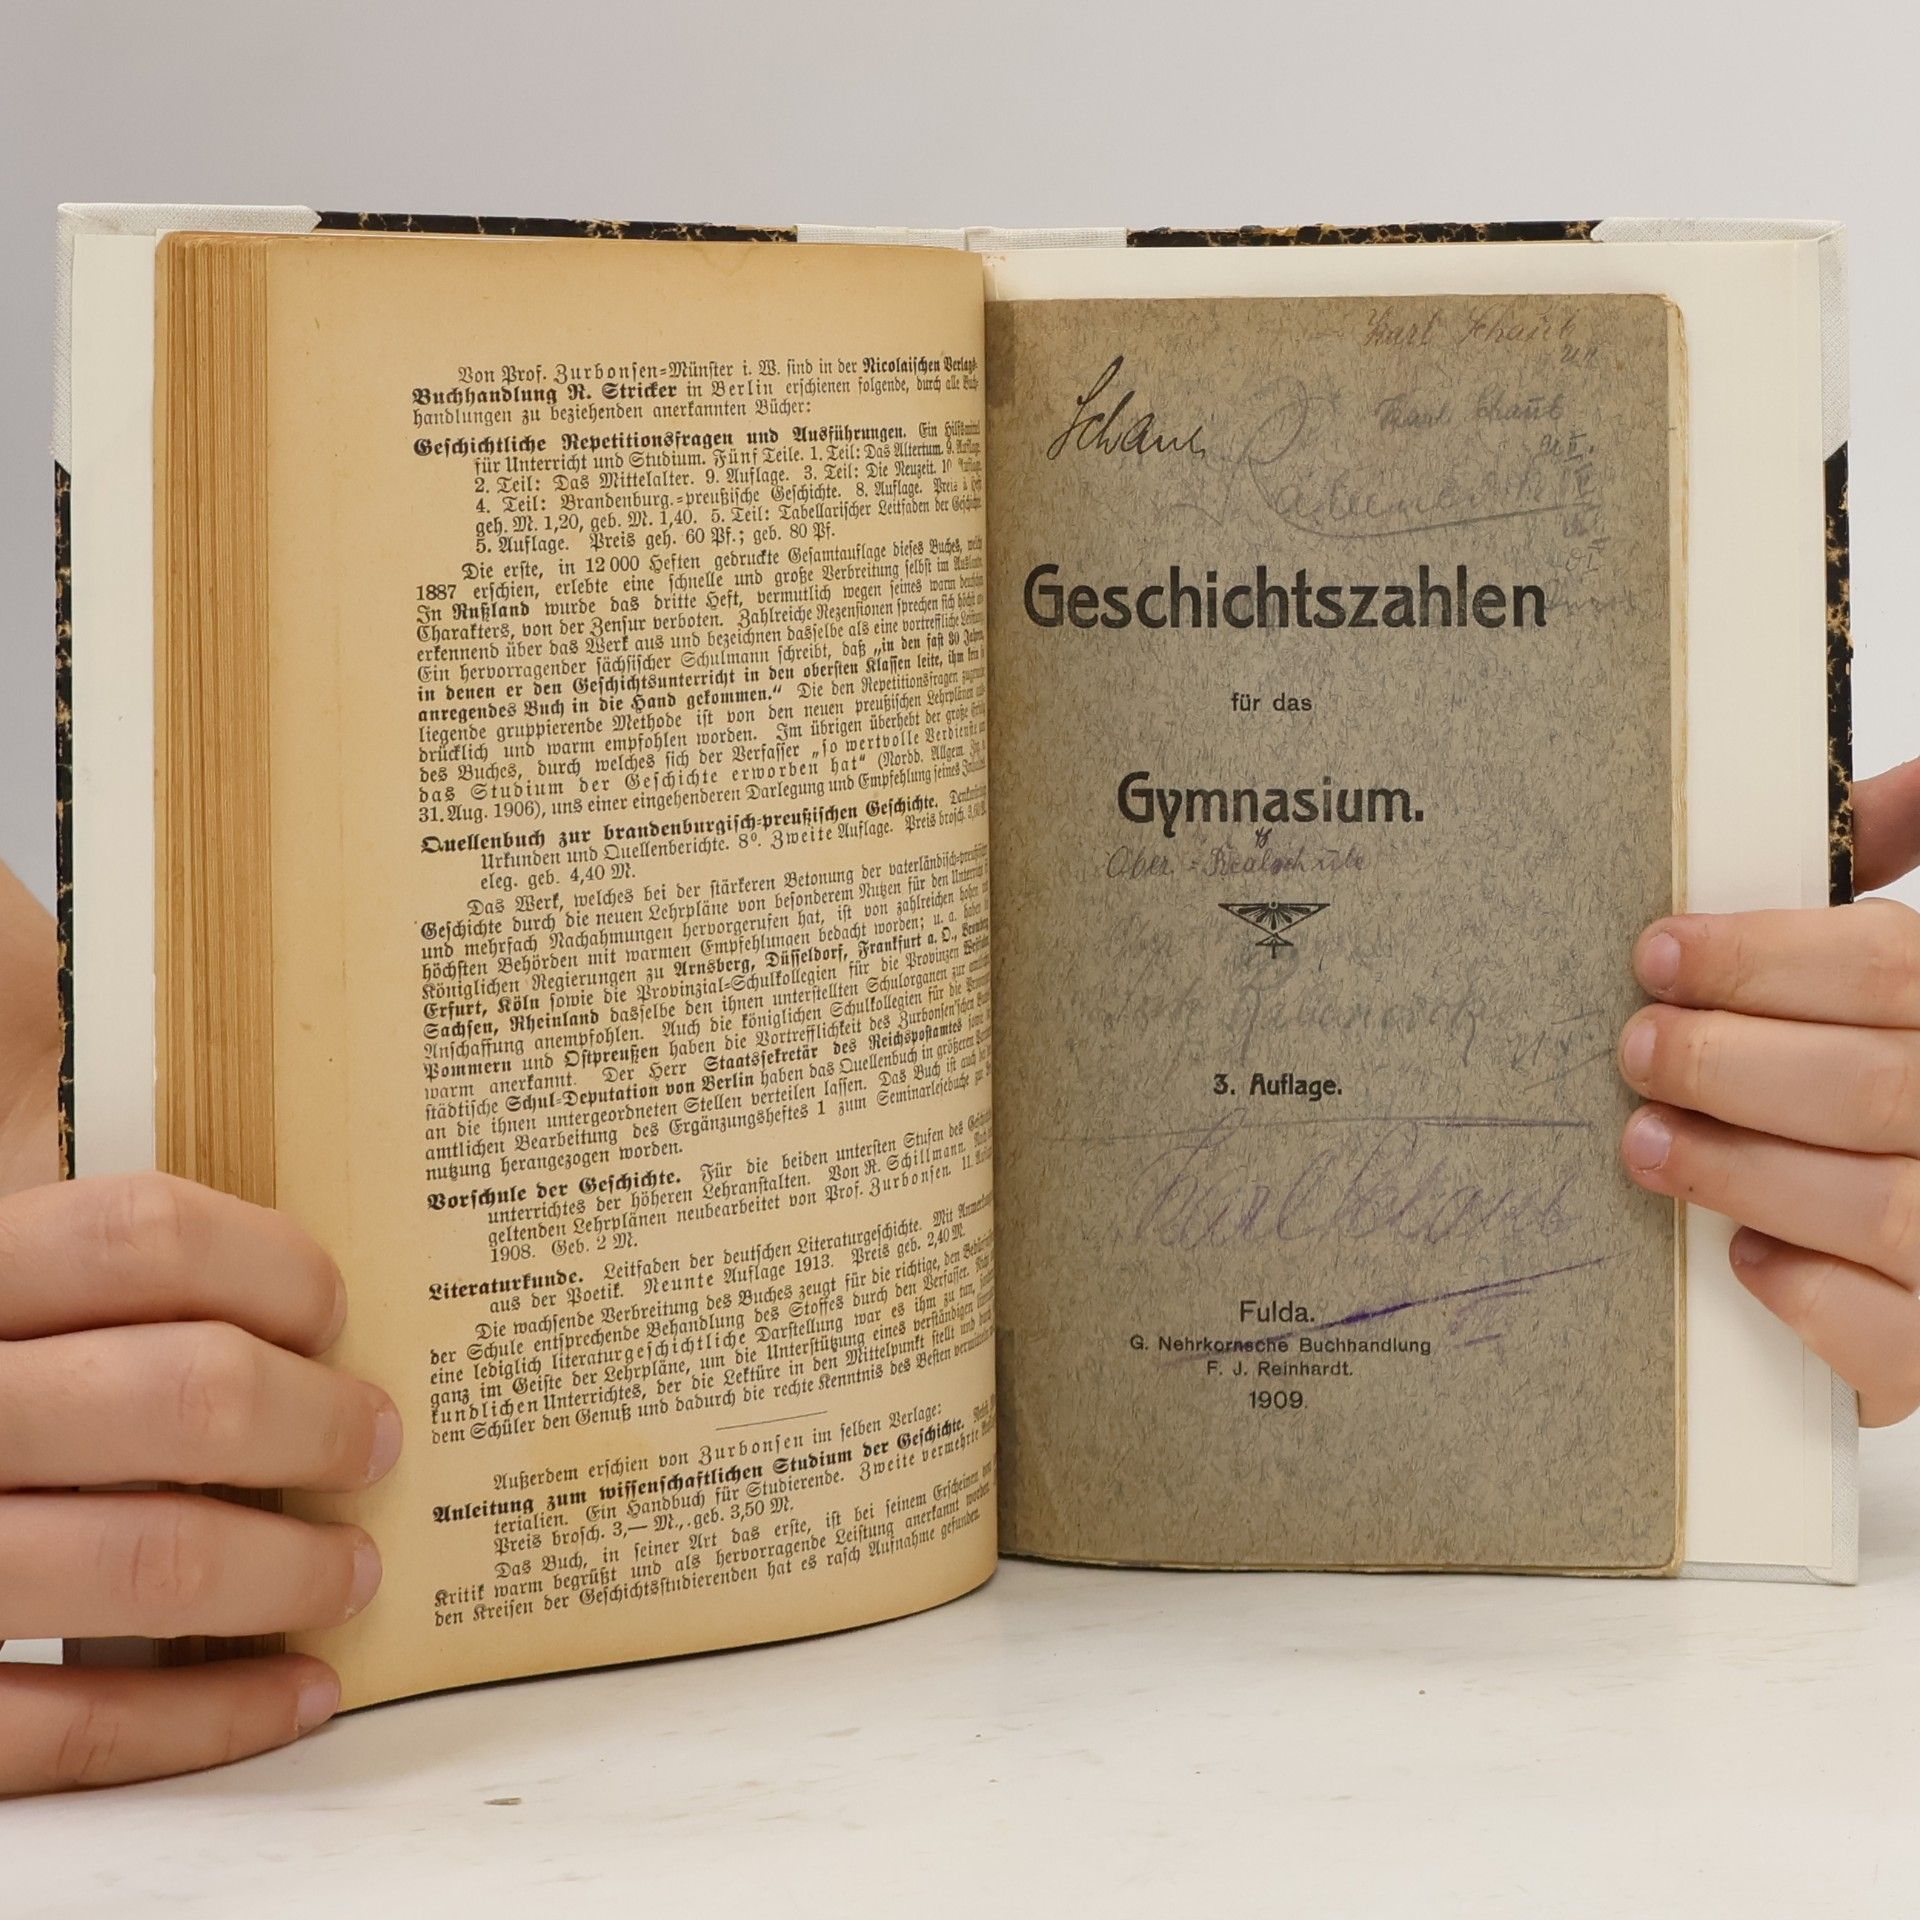 Von Prof. Zurbonsen-Münster i. W. sind in der Nicolaischen Verlags-
Buchhandlung R. Stricker in Berlin erschienen folgende, durch alle Buch-
handlungen zu beziehenden anerkannten Bücher:
Geschichtliche Repetitionsfragen und Ausführungen. Ein Hilfsmittel
für Unterricht und Studium. Fünf Teile. 1. Teil: Das Altertum. 9. Auflage.
2. Teil: Das Mittelalter. 9. Auflage. 3. Teil: Die Neuzeit. 10. Auflage.
4. Teil: Brandenburg.-preußische Geschichte. 8. Auflage. Preis à Heft
geh. M. 1,20, geb. M. 1,40. 5. Teil: Tabellarischer Leitfaden der Geschichte
5. Auflage. Preis geh. 60 Pf.; geb. 80 Pf.
Die erste, in 12 000 Heften gedruckte Gesamtauflage dieses Buches, welche
1887 erschien, erlebte eine schnelle und große Verbreitung selbst im Auslande.
In Rußland wurde das dritte Heft, vermutlich wegen seines warm deutschen
Charakters, von der Zensur verboten. Zahlreiche Rezensionen sprechen sich höchst an-
erkennend über das Werk aus und bezeichnen dasselbe als eine vortreffliche Leistung.
Ein hervorragender sächsischer Schulmann schreibt, daß „in den fast 30 Jahren,
in denen er den Geschichtsunterricht in den obersten Klassen leite, ihm kein so
anregendes Buch in die Hand gekommen.“ Die den Repetitionsfragen zugrunde
liegende gruppierende Methode ist von den neuen preußischen Lehrplänen aus-
drücklich und warm empfohlen worden. Im übrigen überhebt der große Erfolg
des Buches, durch welches sich der Verfasser „so wertvolle Verdienste um
das Studium der Geschichte erworben hat“ (Nordd. Allgem. Ztg.
31. Aug. 1906), uns einer eingehenderen Darlegung und Empfehlung seines Inhaltes.
Quellenbuch zur brandenburgisch-preußischen Geschichte. Denkwürdige
Urkunden und Quellenberichte. 8°. Zweite Auflage. Preis brosch. 3,60 M.
eleg. geb. 4,40 M.
Das Werk, welches bei der stärkeren Betonung der vaterländisch-preußischen
Geschichte durch die neuen Lehrpläne von besonderem Nutzen für den Unterricht
und mehrfach Nachahmungen hervorgerufen hat, ist von zahlreichen hohen und
höchsten Behörden mit warmen Empfehlungen bedacht worden; u. a. haben die
Königlichen Regierungen zu Arnsberg, Düsseldorf, Frankfurt a. O., Bromberg,
Erfurt, Köln sowie die Provinzial-Schulkollegien für die Provinzen Westfalen,
Sachsen, Rheinland dasselbe den ihnen unterstellten Schulorganen zur
Anschaffung anempfohlen. Auch die königlichen Schulkollegien für die Provinzen
Pommern und Ostpreußen haben die Vortrefflichkeit des Zurbonsen'schen Buches
warm anerkannt. Der Herr Staatssekretär des Reichspostamtes sowie
städtische Schul-Deputation von Berlin haben das Quellenbuch in größeren
an die ihnen untergeordneten Stellen verteilen lassen. Das Buch ist auch bei der
amtlichen Bearbeitung des Ergänzungsheftes 1 zum Seminarlesebuche zur
nutzung herangezogen worden.
Vorschule der Geschichte. Für die beiden untersten Stufen des Geschichts-
unterrichtes der höheren Lehranstalten. Von R. Schillmann. Nach den
geltenden Lehrplänen neubearbeitet von Prof. Zurbonsen. 11. Auflage
1908. Geb. 2 M.
Literaturkunde. Leitfaden der deutschen Literaturgeschichte. Mit
aus der Poetik. Neunte Auflage 1913. Preis geb. 2,40 M.
Die wachsende Verbreitung des Buches zeugt für die richtige, den Bedürfnissen
der Schule entsprechende Behandlung des Stoffes durch den Verfasser. Nicht
eine lediglich literaturgeschichtliche Darstellung war es ihm zu tun, sondern
ganz im Geiste der Lehrpläne, um die Unterstützung eines verständigen
kundlichen Unterrichtes, der die Lektüre in den Mittelpunkt stellt und
dem Schüler den Genuß und dadurch die rechte Kenntnis des Besten
Außerdem erschien von Zurbonsen im selben Verlage:
Anleitung zum wissenschaftlichen Studium der Geschichte. Nebst Ma-
terialien. Ein Handbuch für Studierende. Zweite vermehrte Auflage
Preis brosch. 3,— M., geb. 3,50 M.
Das Buch, in seiner Art das erste, ist bei seinem Erscheinen von
Kritik warm begrüßt und als hervorragende Leistung anerkannt worden.
den Kreisen der Geschichtsstudierenden hat es rasch Aufnahme gefunden.
Karl Schaub
UII
Schaub
Karl Schaub
Geschichtszahlen
für das
Gymnasium.
Ober-Realschule
3. Auflage.
Karl Schaub
Fulda.
G. Nehrkornsche Buchhandlung
F. J. Reinhardt.
1909.